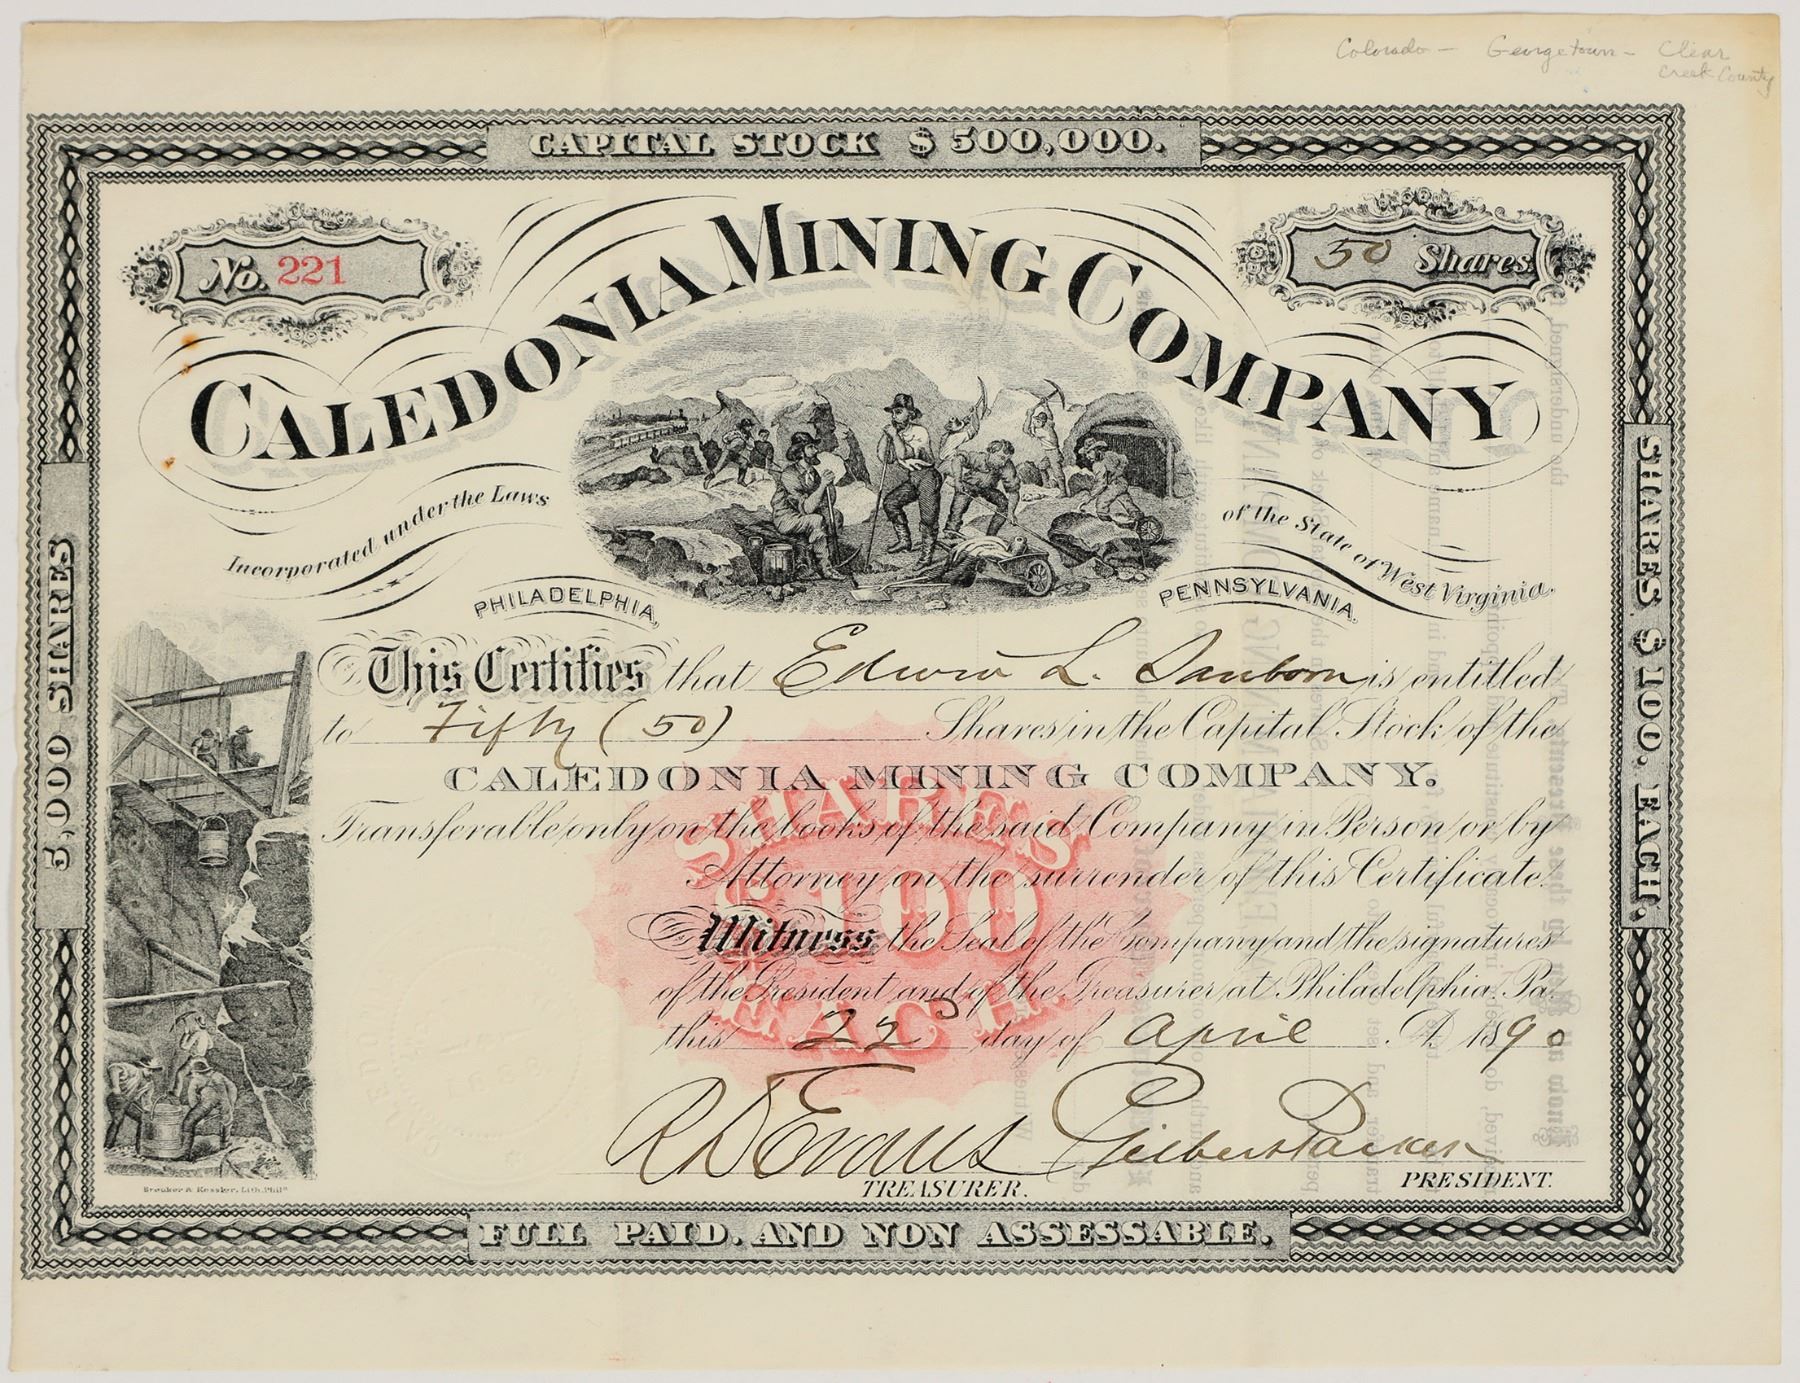 Colorado — Georgetown — Clear
Creek County
CAPITAL STOCK $500,000.
No. 221
50 Shares.
CALEDONIA MINING COMPANY
Incorporated under the Laws of the State of West Virginia.
PHILADELPHIA, PENNSYLVANIA.
5,000 SHARES
SHARES $100. EACH.
This Certifies that Edwin L. Sanborn is entitled
to Fifty (50) Shares in the Capital Stock of the
CALEDONIA MINING COMPANY.
Transferable only on the books of the said Company in Person or by
Attorney on the surrender of this Certificate.
SHARES
$100
EACH.
Witness the Seal of the Company and the signatures
of the President and of the Treasurer at Philadelphia. Pa.
this 22d day of April A. 1890
R D Evans Gilbert Parker
TREASURER. PRESIDENT.
Breuker & Kessler, Lith. Phila
FULL PAID. AND NON ASSESSABLE.